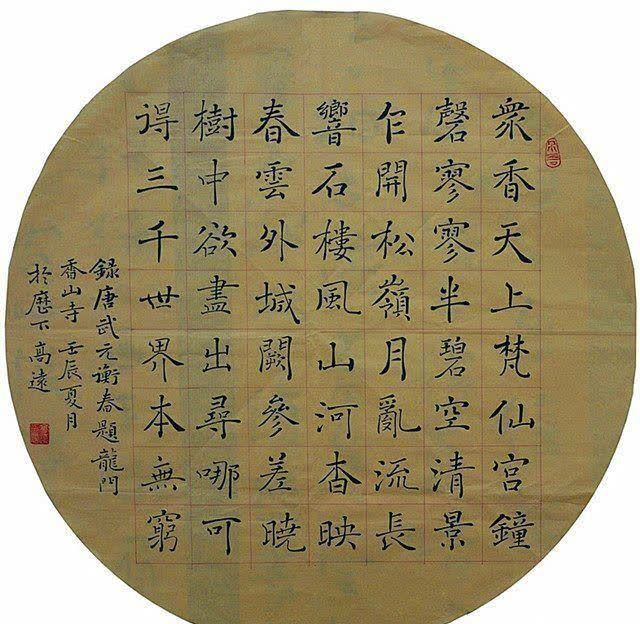 衆香天上梵仙宮鐘
磬寥寥半碧空清景
乍開松嶺月亂流長
響石樓風山河杳映
春雲外城闕參差曉
樹中欲盡出尋哪可
得三千世界本無窮
錄唐武元衡春題龍門
香山寺 壬辰夏月
於歷下高遠